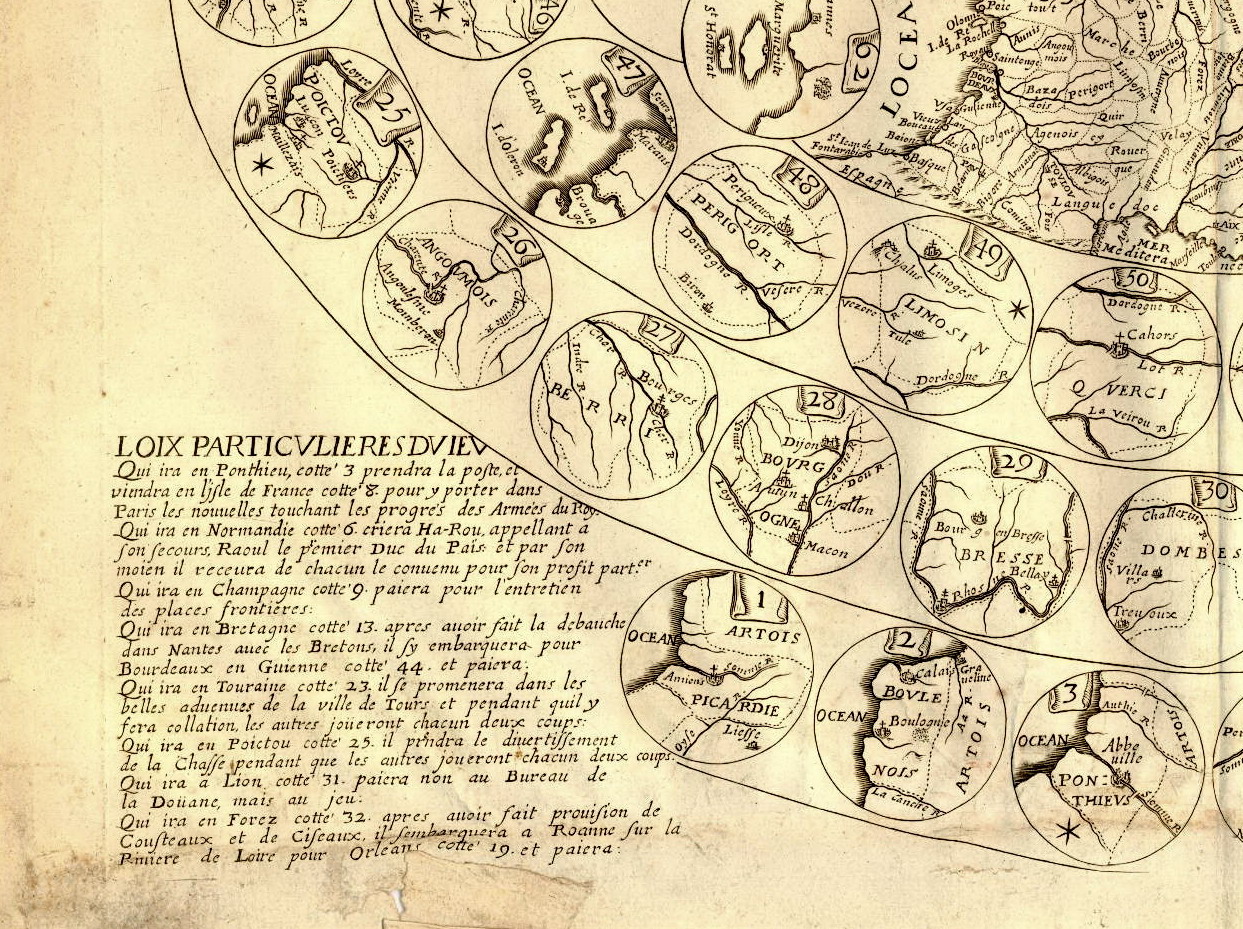 46
62
St Honorat
Marguerite
L OCEA
Olonne
I. de Ré
La Rochel
Aunis
Saintonge
Angoumois
Marche
Berri
Bourbonnois
Limosin
Auvergne
Forez
Bazadois
Perigort
Quir
Agenois
Rouer
Velay
Gascogne
Albigois
Languedoc
Basque
St Iean de Luz
Fontarabie
Espagne
Foix
MER
Mediterranée
Marseille
Aix
25
Loyre R.
OCEAN
POICTOU
Lusson
Maillezais
Poictiers
Vienne R.
47
OCEAN
I. de Ré
I. d'Oleron
Marans
Brouage
48
Perigueux
PERIGORT
L'isle R.
Dordogne
Vesere R.
Biron
49
Chalus
Limoges
LIMOSIN
Vezere R.
Tulle
Dordogne R.
50
Dordogne R.
Cahors
Lot R.
QVERCI
La Veirou R.
26
ANGOUMOIS
Charente R.
Angoulesme
Monberon
Charente R.
27
Cher R.
Indre R.
Bourges
BERRI
Cher R.
28
Yonne R.
Dijon
BOVRGOGNE
Saone R.
Dou R.
Autun
Challon
Loyre R.
Macon
29
Saone R.
Bourg en Bresse
BRESSE
Bellay
Rhos
30
Saone R.
DOMBES
Villars
Trevoux
LOIX PARTICVLIERES DV IEV
Qui ira en Ponthieu, cotté 3 prendra la poste, et
viendra en l'jsle de France cotté 8. pour y porter dans
Paris les nouuelles touchant les progres des Armées du Roy.
Qui ira en Normandie cotté 6. criera Ha-Rou, appellant a
son secours, Raoul le premier Duc du Païs et par son
moien il receura de chacun le conuenu pour son profit part.er
Qui ira en Champagne cotté 9. paiera pour l'entretien
des places frontieres:
Qui ira en Bretagne cotté 13. apres auoir fait la debauche
dans Nantes auec les Bretons, il sy embarquera pour
Bourdeaux en Guienne cotté 44. et paiera:
Qui ira en Touraine cotté 23. il se promenera dans les
belles aduenues de la ville de Tours et pendant quil y
fera collation, les autres joüeront chacun deux coups:
Qui ira en Poictou cotté 25. il prendra le diuertissement
de la Chasse pendant que les autres joueront chacun deux coups:
Qui ira a Lion cotté 31. paiera non au Bureau de
la Doüane, mais au jeu:
Qui ira en Forez cotté 32. apres auoir fait prouision de
Cousteaux et de Ciseaux, il sembarquera a Roanne sur la
Riuiere de Loire pour Orleans cotté 19. et paiera:
1
ARTOIS
OCEAN
Somme R.
Amiens
PICARDIE
Oyse
Liesse
2
Calais
Graueline
BOVLENOIS
OCEAN
Boulogne
Aa R.
ARTOIS
La Canche R.
3
Authie R.
OCEAN
Abbeuille
ARTOIS
PONTHIEVS
Somme R.